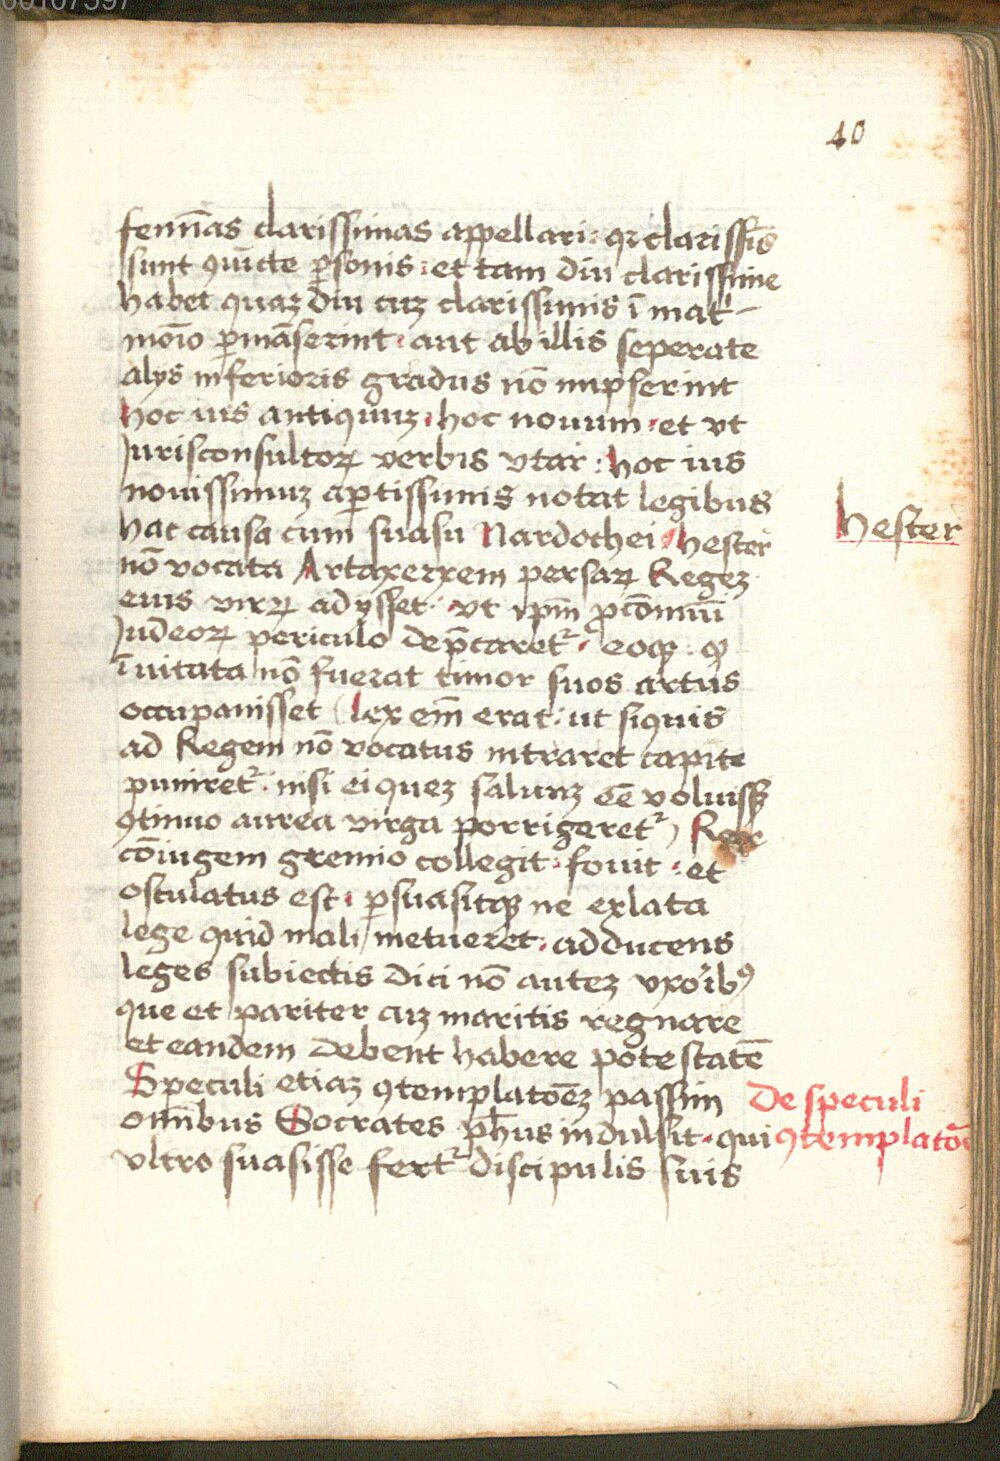 00107397
40
femīas clarissimas appellari: qꝛ clarissīs
sunt ꝯiūcte ꝑsonis: et tam diu clarissime
habet quaꝫ diu cuꝫ clarissimis ī mat̓-
moīo ꝑmāserint: aut ab illis seperate
alijs inferioris gradus nō nupserint
hoc ius antiquuꝫ: hoc nouum: et vt
Jurisconsultoꝝ verbis vtar: hoc ius
nouissimuꝫ aꝑtissimis notat legibus
hac causa cum suasu Mardochei Hester
Hester
nō vocata Artaxerxem persaꝝ Regeꝫ
eius virꝝ adysset: vt ip̄m ꝓ cōmūi
Judeoꝝ periculo dep̄caretᷣ: eoqꝫ: ꝙ
īuitata nō fuerat timor suos artus
occupauisset (lex em̄ erat: ut siquis
ad Regem nō vocatus intraret capite
puniretᷣ: nisi ei queꝫ saluuꝫ eē voluissꝫ
ꝯtinuo aurea virga porrigeretᷣ) Rex
cōiugem gremio collegit: fouit: et
osculatus est: ꝑsuasitqꝫ ne exlata
lege quid mali metueret: adducens
leges subiectis dici nō auteꝫ vxoribꝰ
que et pariter cuꝫ maritis regnare
et eandem debent habere potestatē
Speculi etiaꝫ ꝯtemplatōeꝫ passim
De speculi
omībus Socrates ph̄us indulsit: qui
ꝯtemplatōe
vltro suasisse fertᷣ discipulis suis